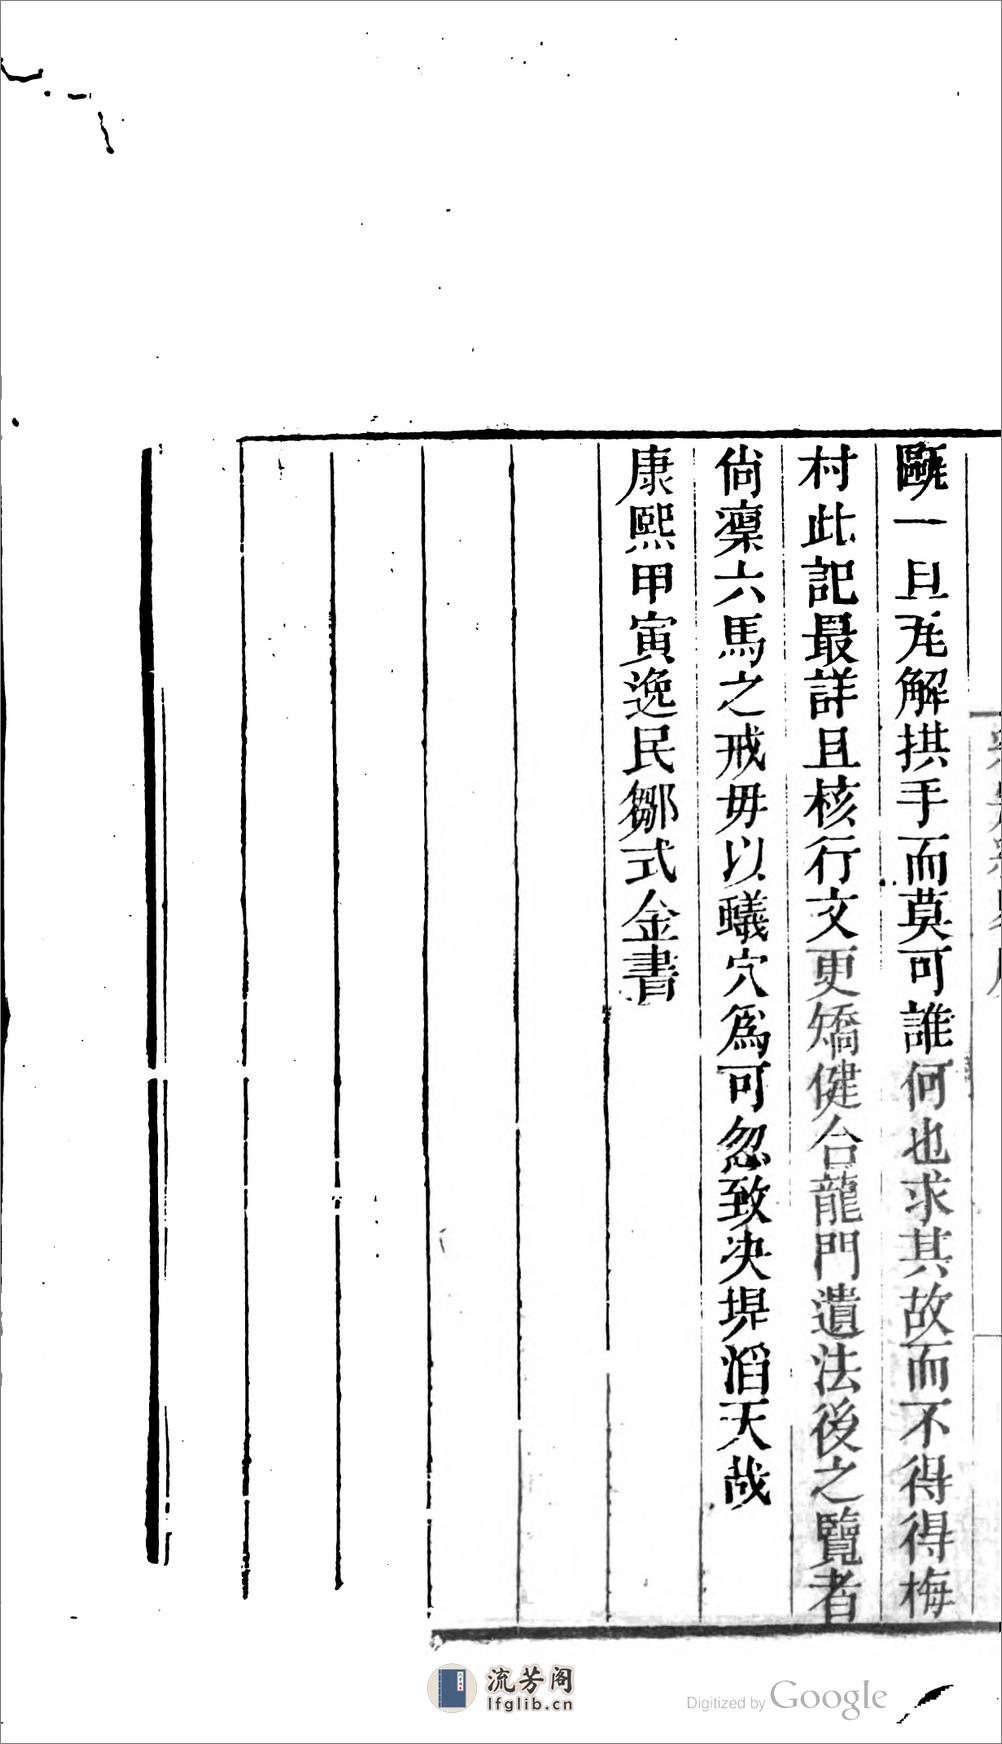 甌一旦瓦解拱手而莫可誰何也求其故而不得得梅
村此記最詳且核行文更矯健合龍門遺法後之覽者
尙凜六馬之戒毋以蟻穴爲可忽致决堤滔天哉
康熙甲寅逸民鄒式金書
流芳阁
lfglib.cn
Digitized by Google